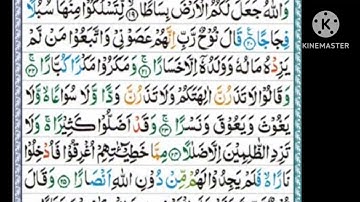 وَاللّٰهُ جَعَلَ لَكُمُ الْاَرْضَ بِسَاطًا ۙ﴿۱۹﴾ لِّتَسْلُكُوْا مِنْهَا سُبُلًا
فِجَاجًا ﴿۲۰﴾ قَالَ نُوْحٌ رَّبِّ اِنَّهُمْ عَصَوْنِيْ وَاتَّبَعُوْا مَنْ لَّمْ
يَزِدْهُ مَالُهٗ وَوَلَدُهٗۤ اِلَّا خَسَارًا ﴿۲۱﴾ وَمَكَرُوْا مَكْرًا كُبَّارًا ﴿۲۲﴾
وَقَالُوْا لَا تَذَرُنَّ اٰلِهَتَكُمْ وَلَا تَذَرُنَّ وَدًّا وَّلَا سُوَاعًا ۙ وَّلَا
يَغُوْثَ وَيَعُوْقَ وَنَسْرًا ﴿۲۳﴾ وَقَدْ اَضَلُّوْا كَثِيْرًا ۚ وَلَا
تَزِدِ الظّٰلِمِيْنَ اِلَّا ضَلٰلًا ﴿۲۴﴾ مِمَّا خَطِيْٓـٰٔتِهِمْ اُغْرِقُوْا فَاُدْخِلُوْا
نَارًا ۙ فَلَمْ يَجِدُوْا لَهُمْ مِّنْ دُوْنِ اللّٰهِ اَنْصَارًا ﴿۲۵﴾ وَقَالَ
KINEMASTER